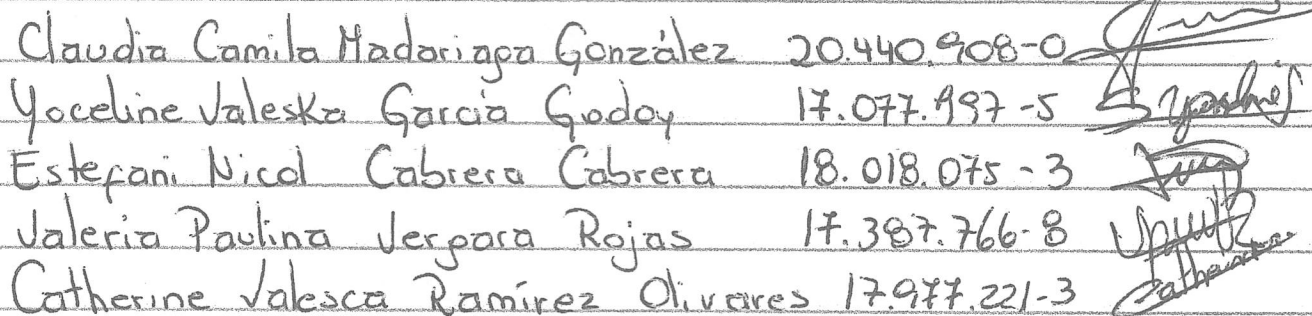 Claudia Camila Madariaga González 20.440.908-0
Yoceline Valeska García Godoy 17.077.997-5
Estefani Nicol Cabrera Cabrera 18.018.075-3
Valeria Paulina Vergara Rojas 17.387.766-8
Catherine Valesca Ramírez Olivares 17.977.221-3